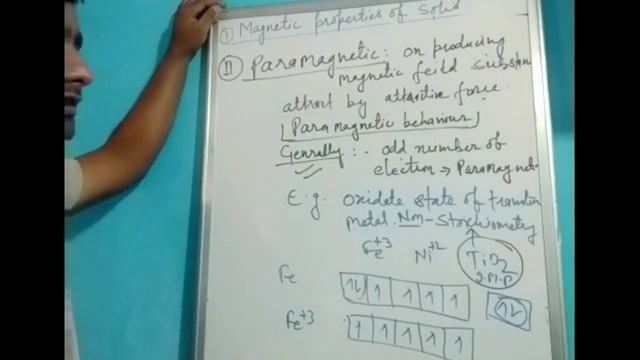 ① Magnetic properties of Solid
② Paramagnetic: on producing
magnetic feild substan
attract by attractive force.
[Paramagnetic behaviour]
Genrally :- odd number of
electron → Paramagnet
E.g. oxidate state of transtn
metal. Non-Stochiometry
Fe+3 Ni+2 TiO2
Fe 1L 1 1 1 1 1L
Fe+3 1 1 1 1 1